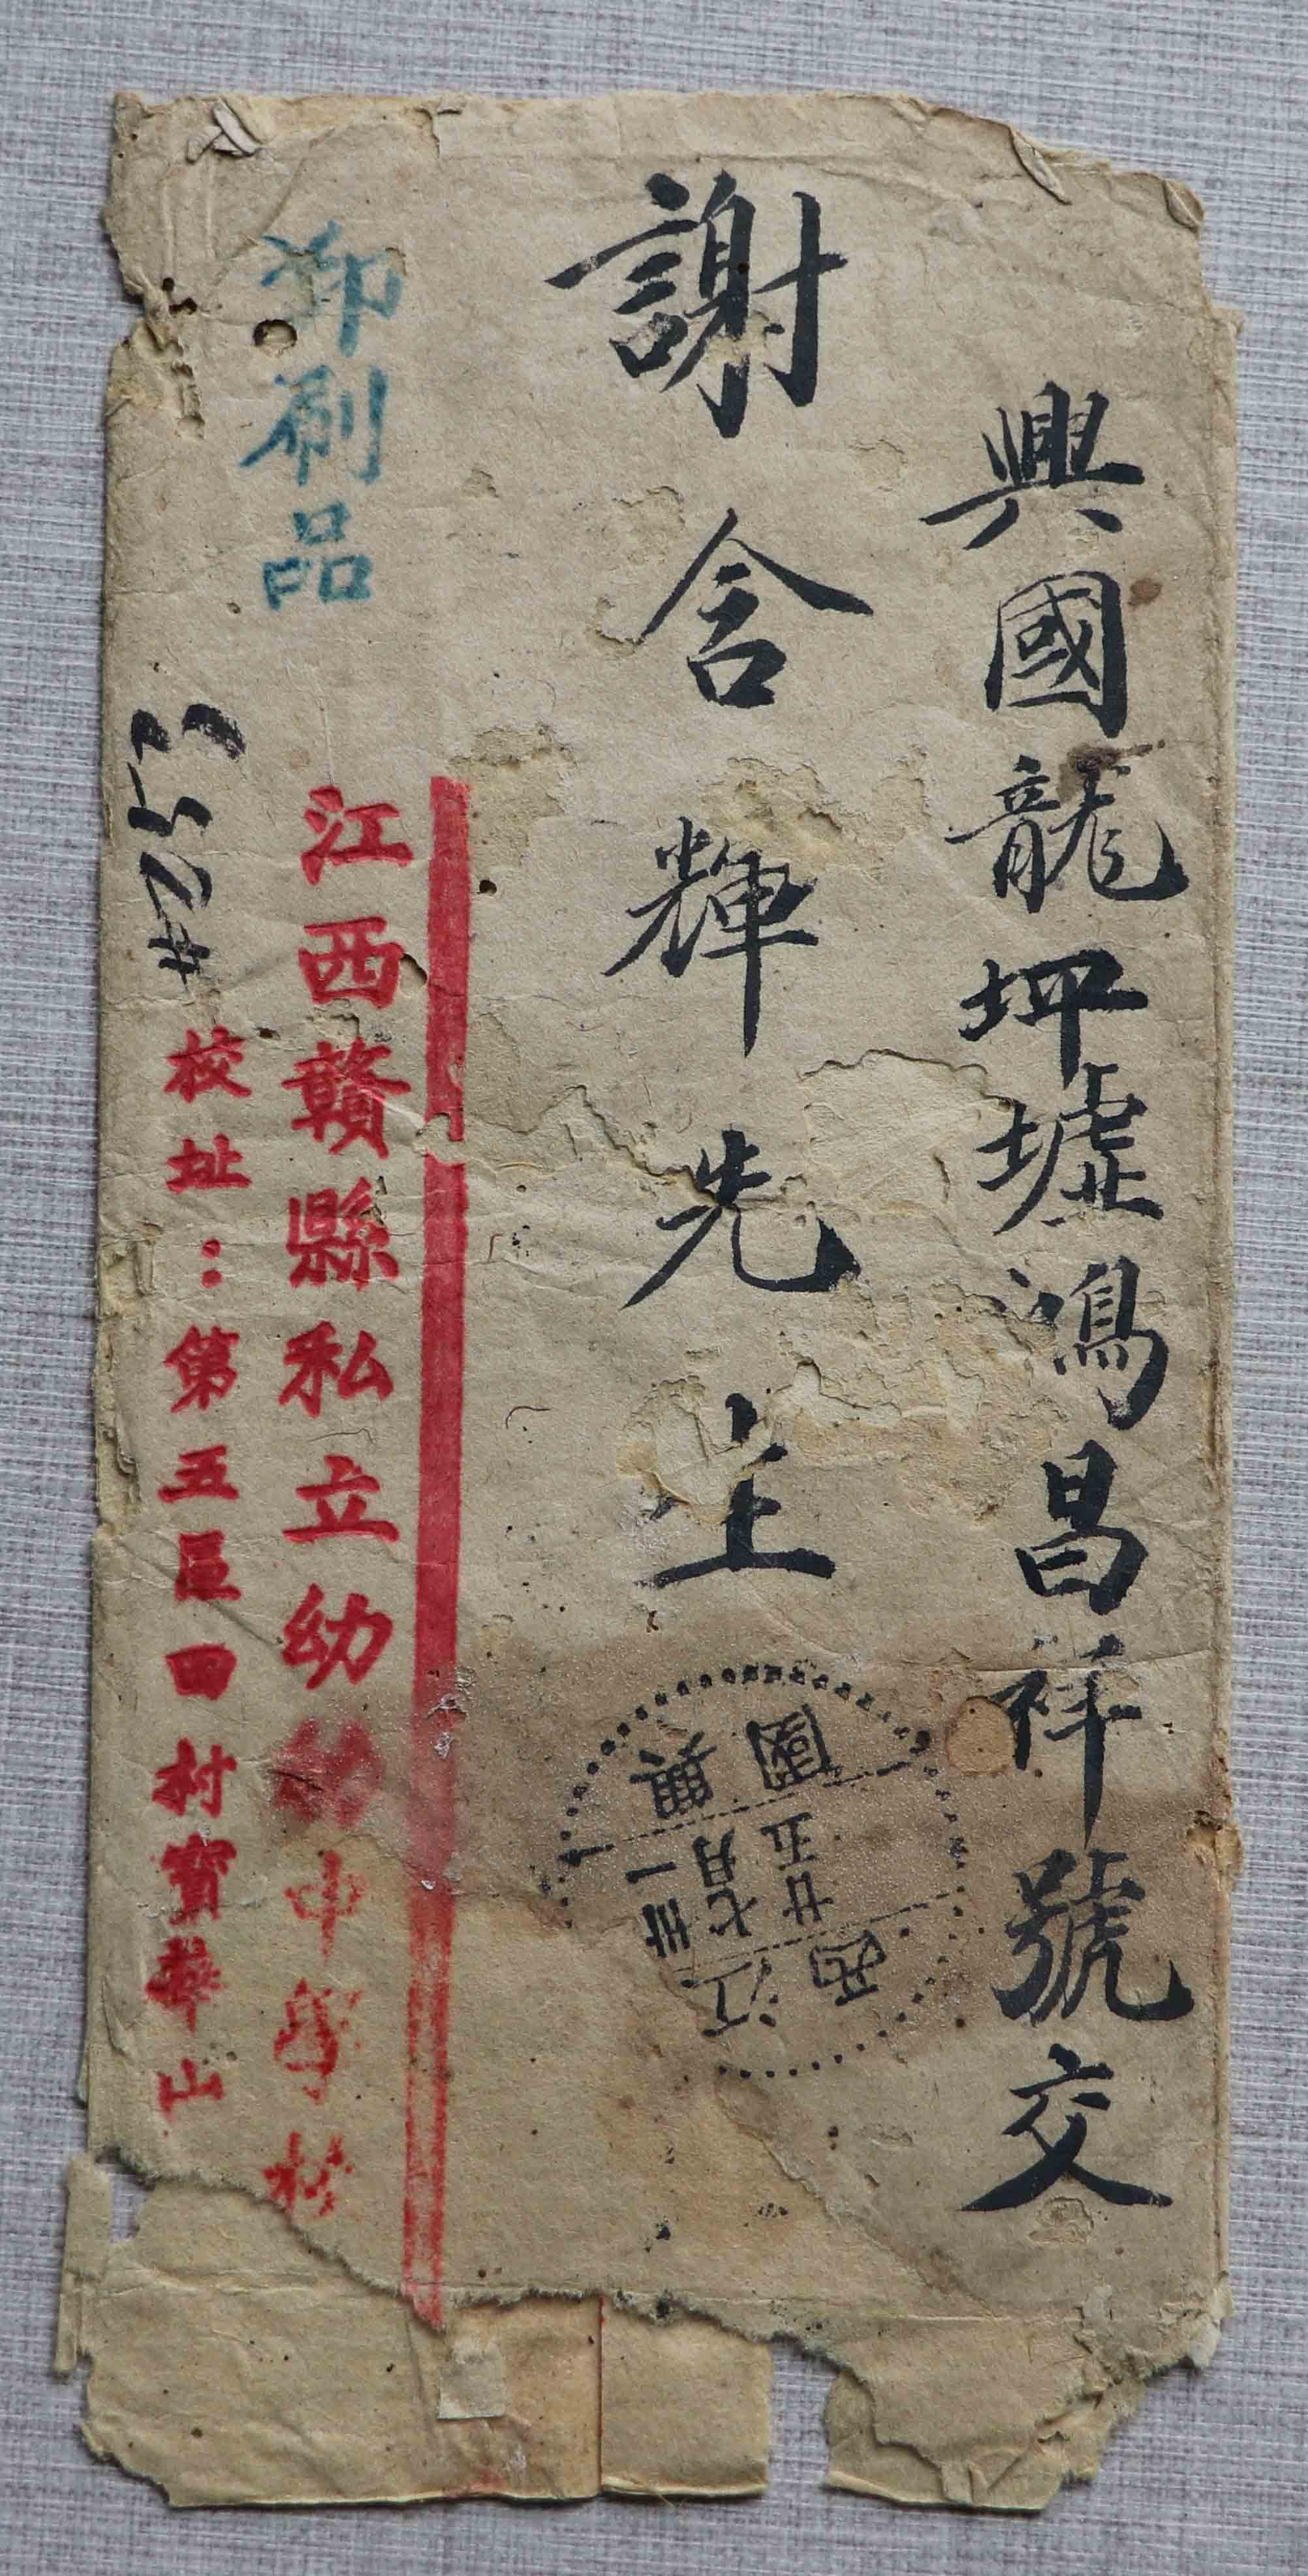 興國龍坪墟鴻昌祥號交
謝含輝先生
印刷品
江西贛縣私立幼幼中學校
校址：第五區田村寶華山
興國
卅一
七月
廿五
江西